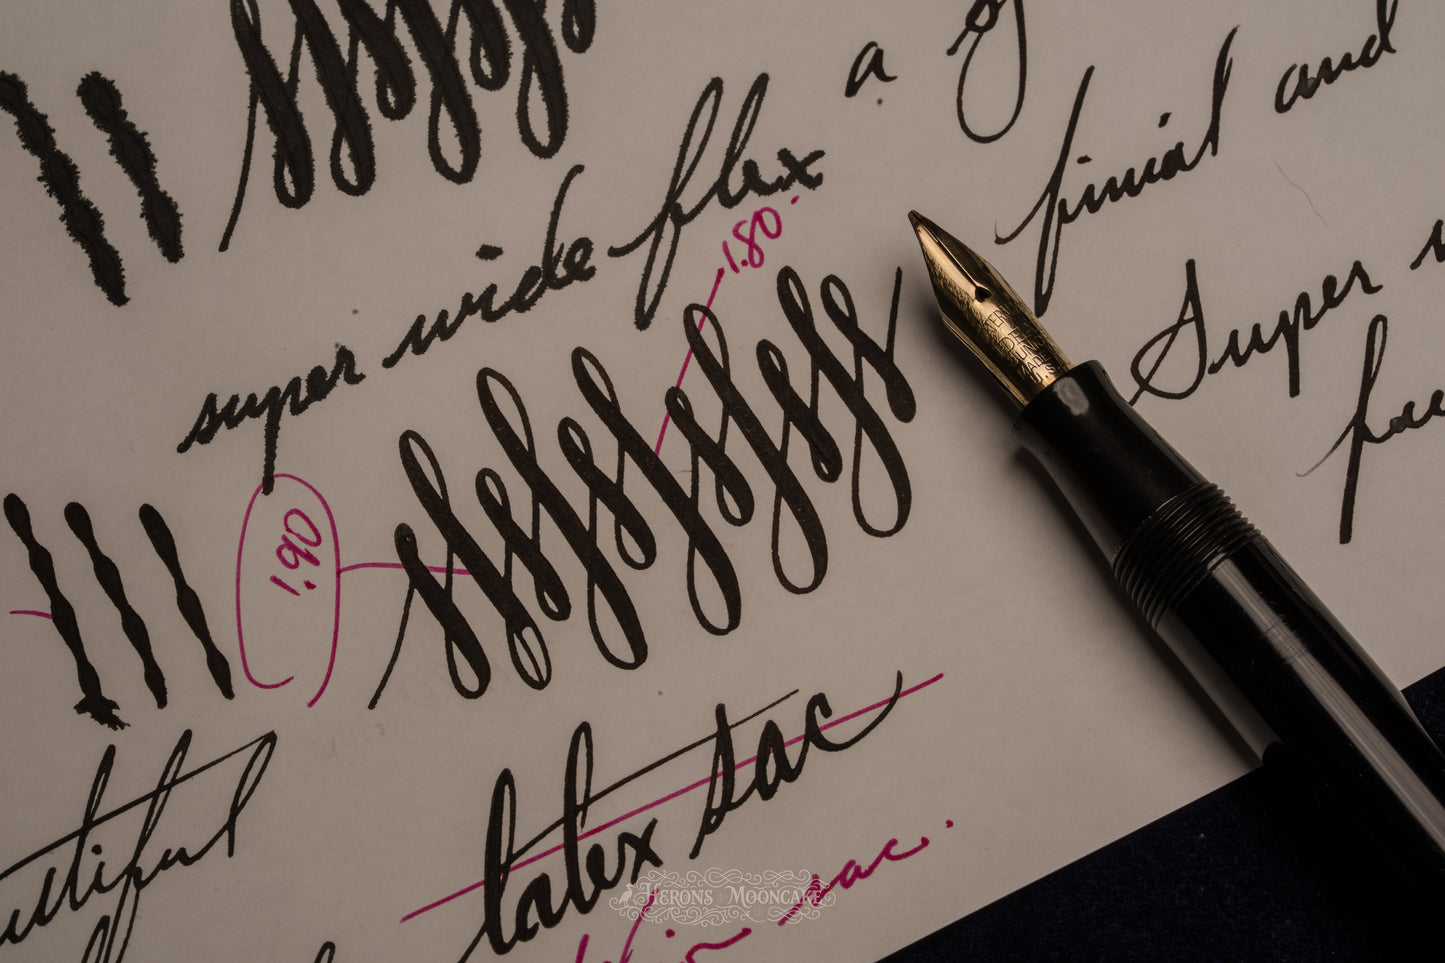 a
finial and
super wide flex
1.80.
Super
1.90
utiful
latex sac
sac.
MADE
U.S
HERONS MOONCAKE